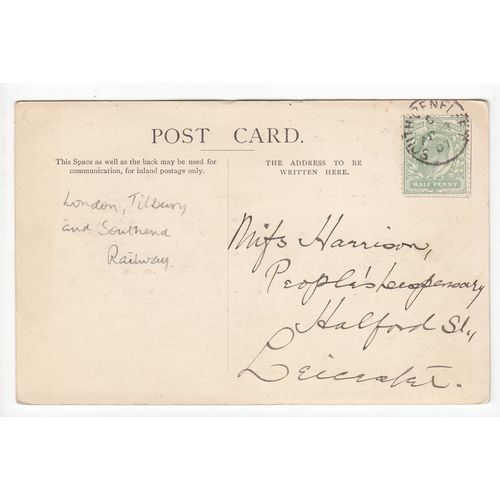 POST CARD.
This Space as well as the back may be used for
communication, for inland postage only.
THE ADDRESS TO BE
WRITTEN HERE.
HALF PENNY
London, Tilbury
and Southend
Railway.
Miss Harrison,
People's Dispensary
Halford St.,
Leicester.